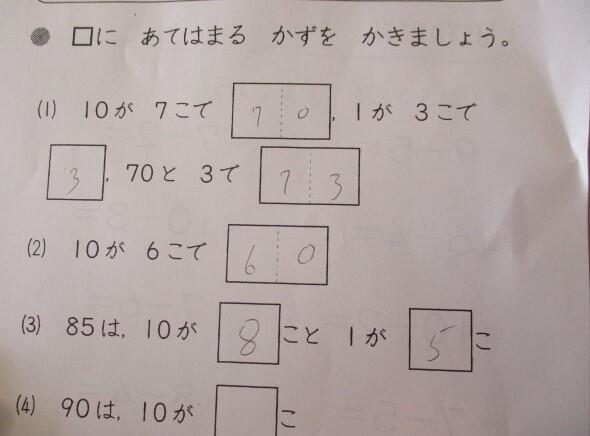 □に あてはまる かずを かきましょう。
(1) 10が 7こで 70, 1が 3こで
3, 70と 3で 73
(2) 10が 6こで 60
(3) 85は, 10が 8こと 1が 5こ
(4) 90は, 10が □こ